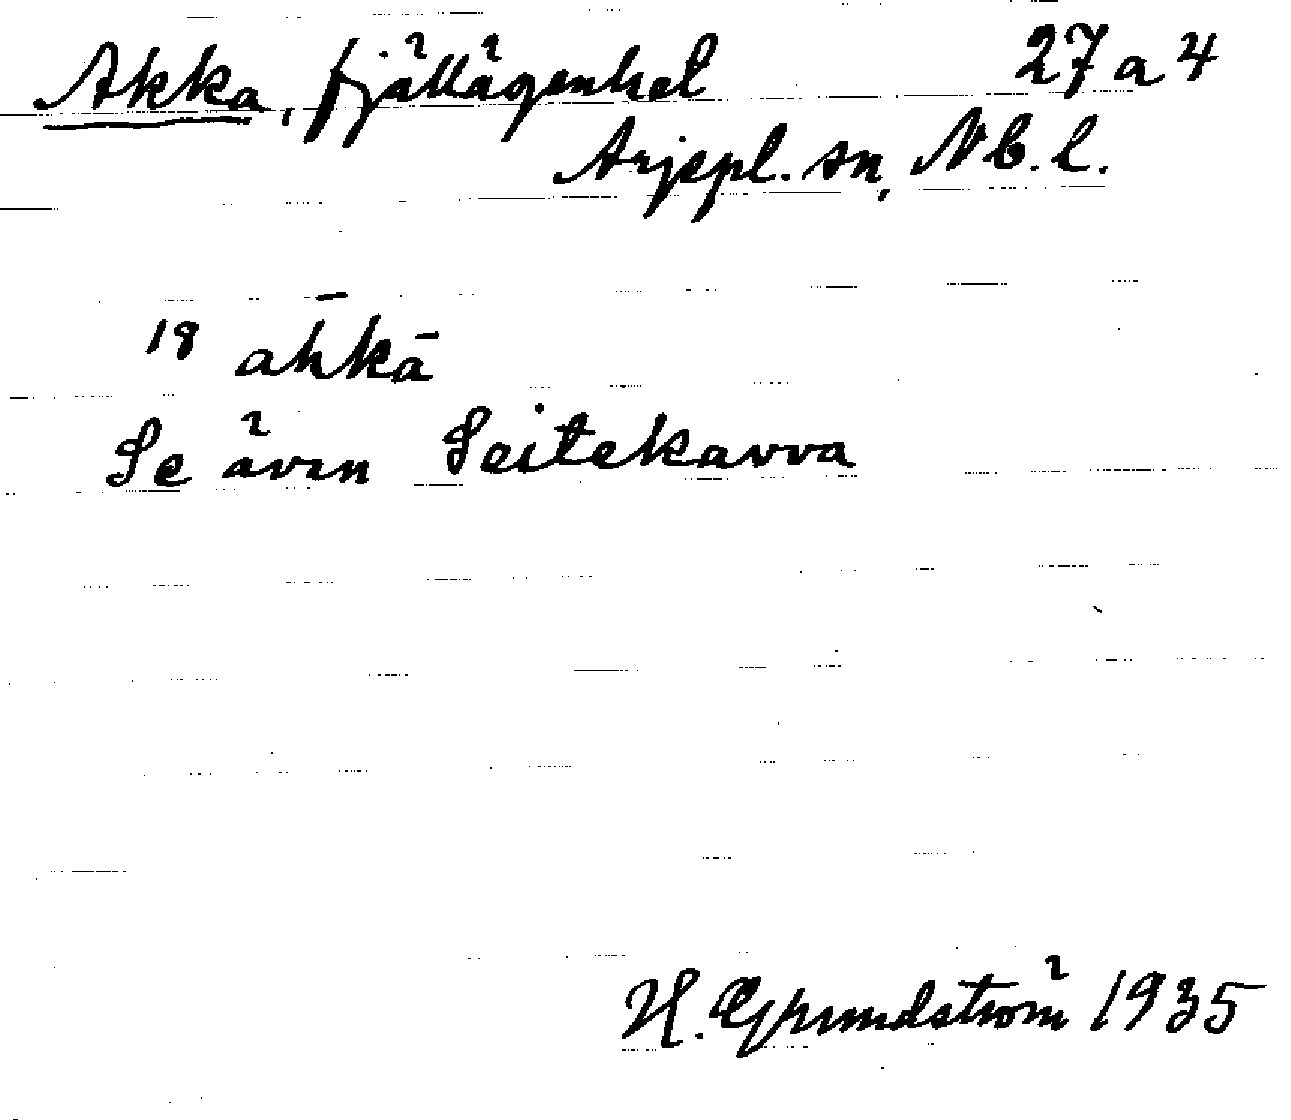 Akka, fjällägenhet 27 a 4
Arjepl. sn, Nb. l.
18 āhkā
Se även Seitekavva
H. Grundström 1935